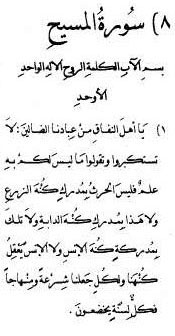 ٨) سورة المسيح
بسم الآب الكلمة الروح الاله الواحد
الأوحد
١) يا أهل النفاق من عبادنا الضالين: لا
تستكبروا وتقولوا ما ليس لكم به
علمٌ فليس الحرث بمدركٍ كُنْهَ الزرع
ولا هذا بمدركٍ كُنْهَ الدابة ولا تلك
بمدركةٍ كُنْهَ الإنس ولا الإنس يعقل
كُنْهَنا ولكلٍ جعلنا شِرعةً ومنهاجاً
فكلٌ لسنةٍ يخضعون.